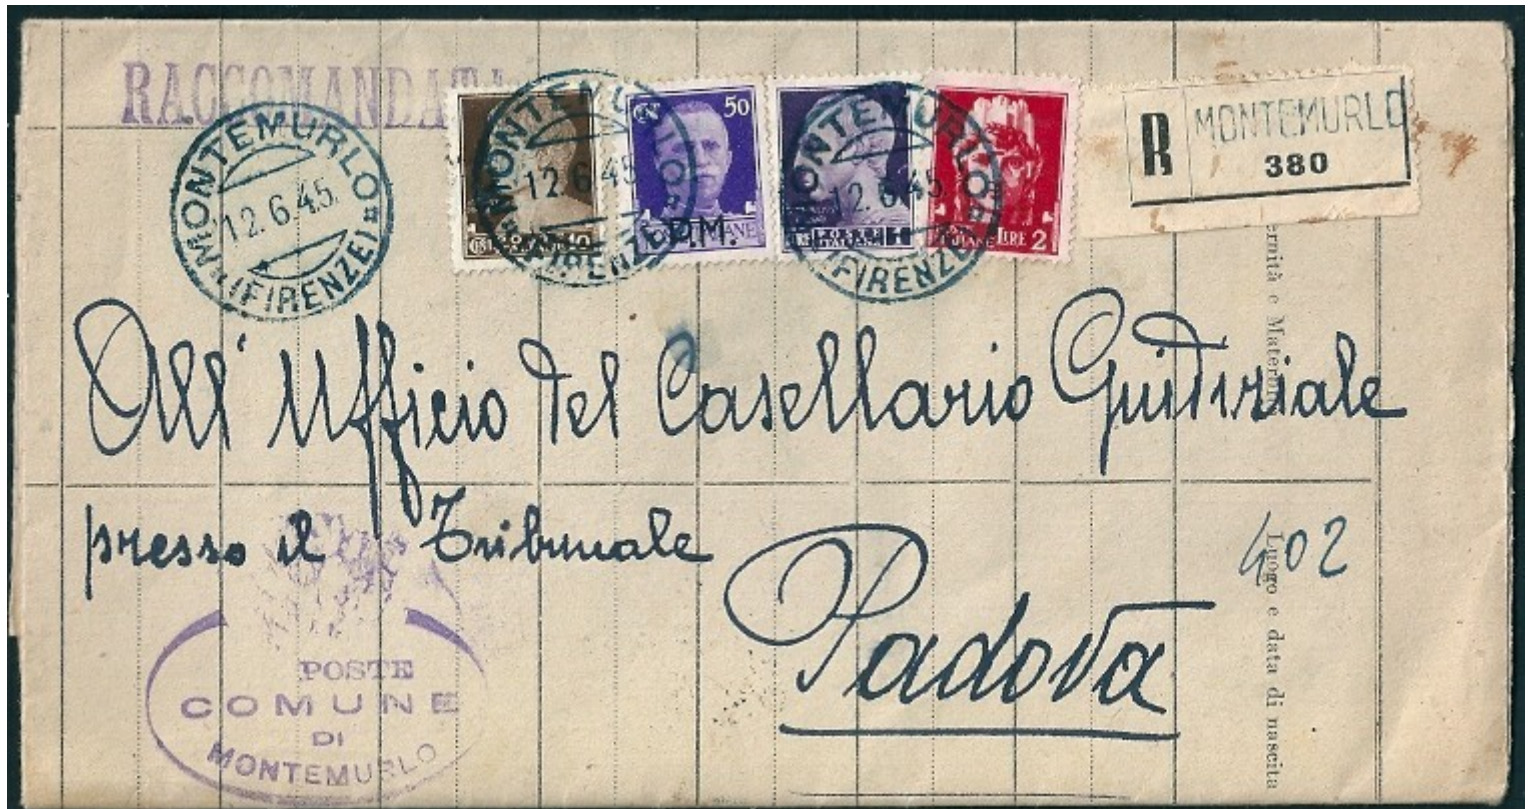 RACCOMANDATA
MONTEMURLO
12.6.45.
(FIRENZE)
MONTEMURLO
12.6.45
(FIRENZE)
50
P.M.
MONTEMURLO
12.6.45
(FIRENZE)
POSTE
ITALIANE
LIRE 2
R MONTEMURLO
380
All' Ufficio del Casellario Giudiziale
presso il Tribunale
Padova
402
POSTE
COMUNE
DI
MONTEMURLO
Luogo e data di nascita